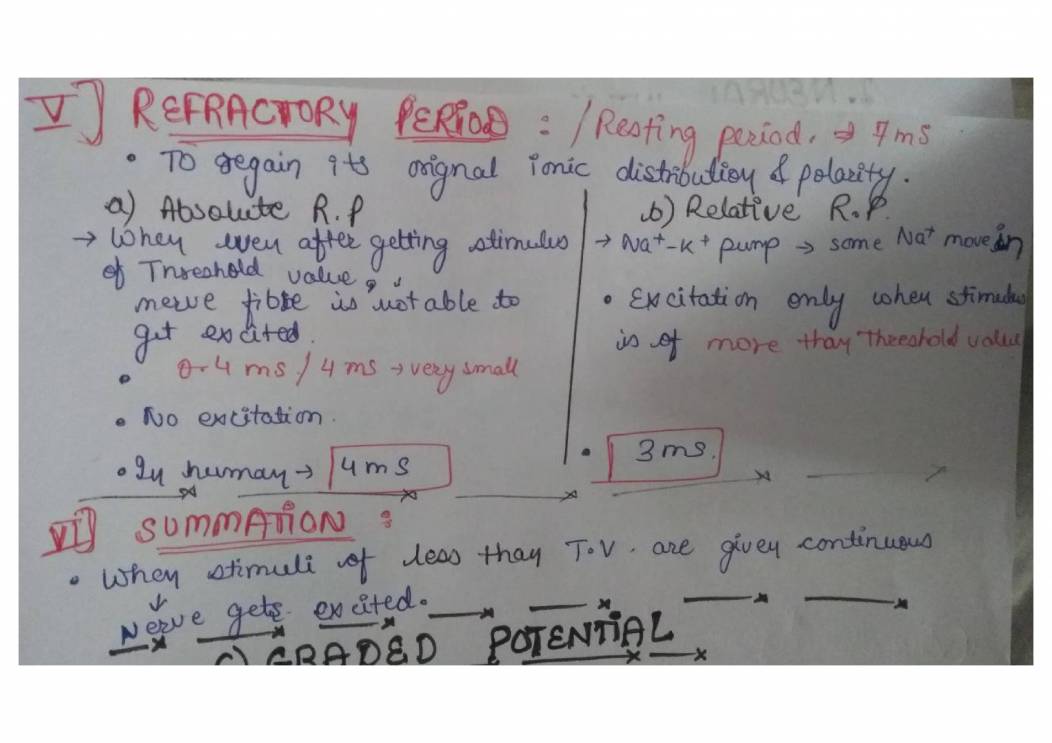 V] REFRACTORY PERIOD : / Resting period. → 7ms
• To regain its orignal ionic distribution & polarity.
a) Absolute R.P
→ When even after getting stimulus
of Threshold value,
nerve fibre is not able to
get excited.
• 0.4 ms / 4 ms → very small
• No excitation.
• In human → 4ms
b) Relative R.P.
→ Na+-K+ pump → some Na+ move in
• Excitation only when stimulus
is of more than Threshold value
• 3ms.
VI] SUMMATION :
• When stimuli of less than T.V. are given continuous
↓
Nerve gets excited.
c) GRADED POTENTIAL